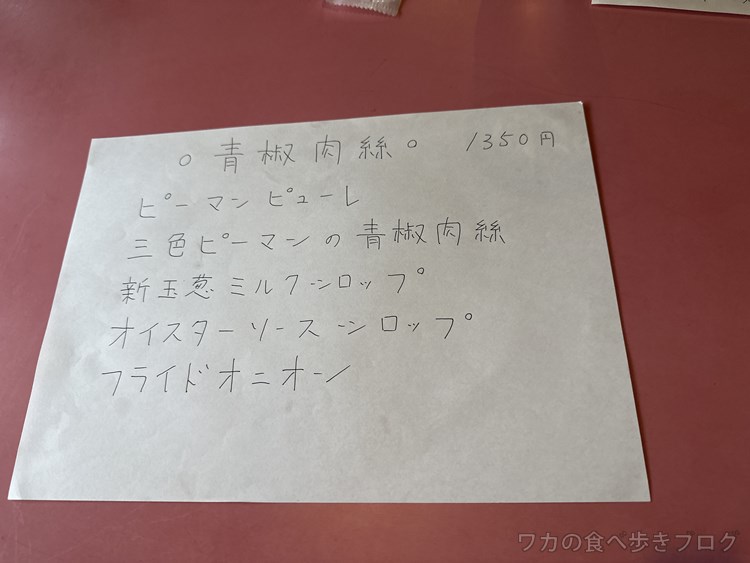 ○ 青椒肉絲 ○ 1350円
ピーマンピューレ
三色ピーマンの青椒肉絲
新玉葱ミルクシロップ
オイスターソースシロップ
フライドオニオン
ワカの食べ歩きブログ